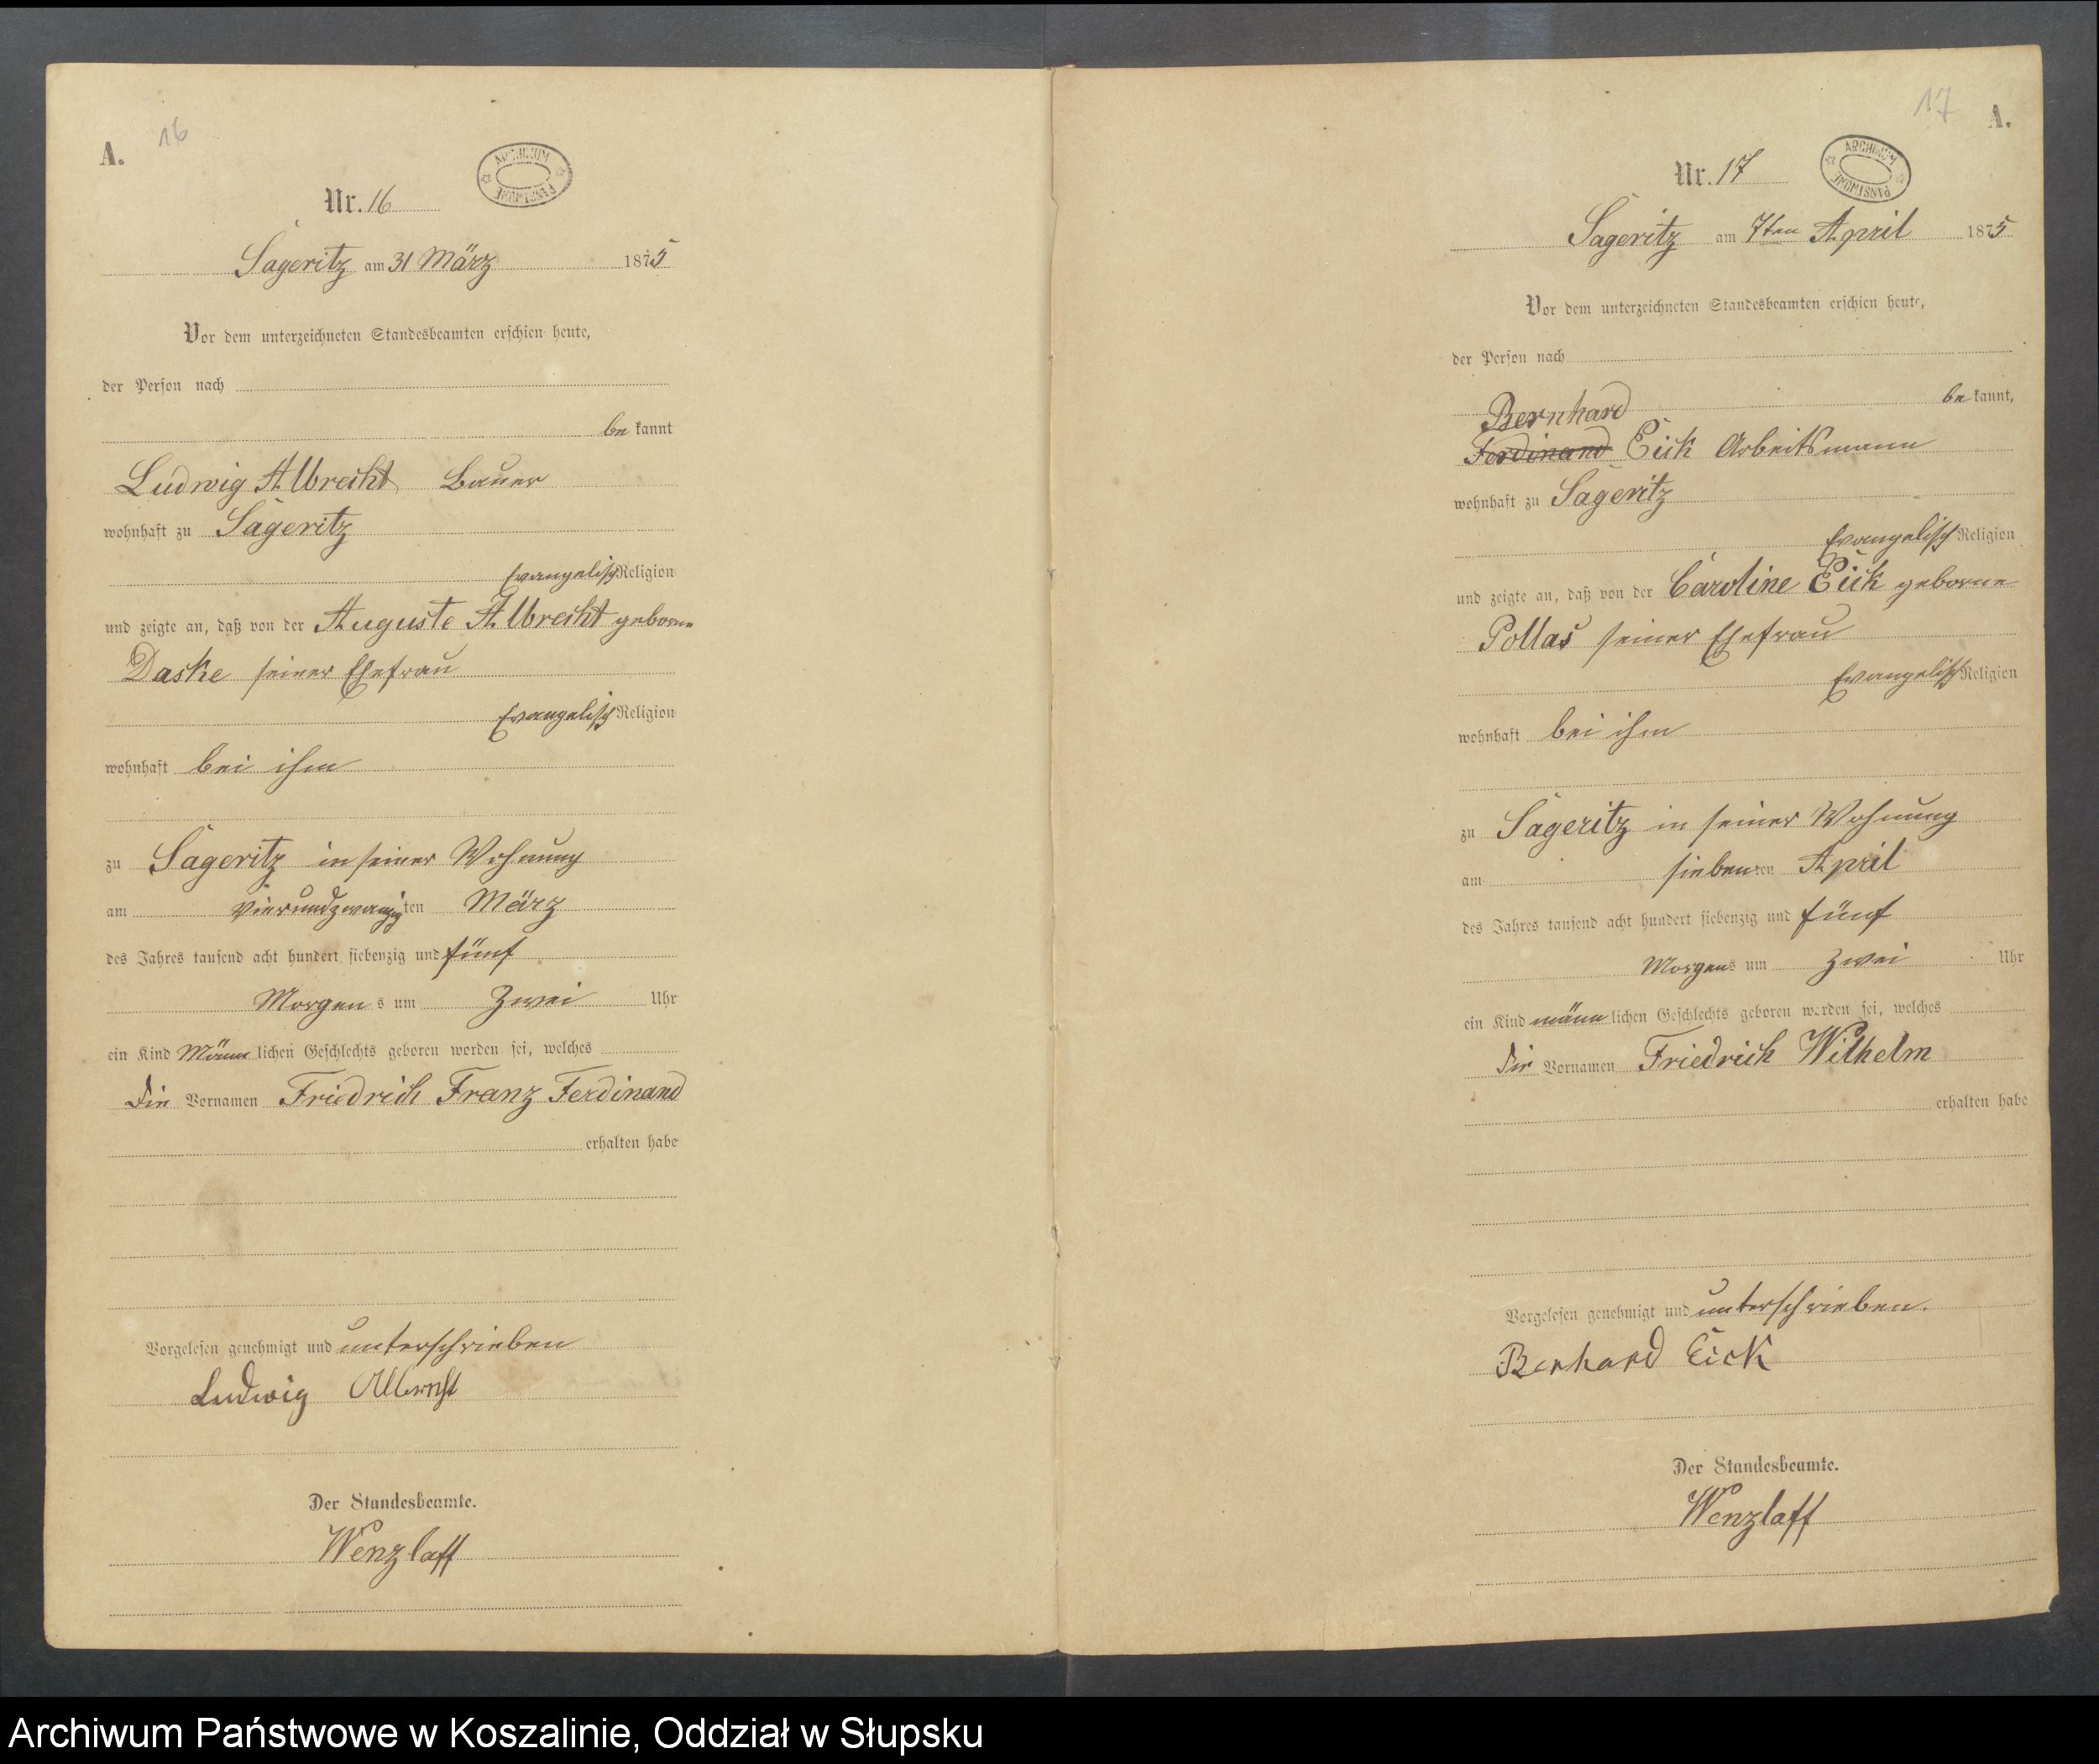 16
A.
ARCHIWUM PAŃSTWOWE
Nr. 16
Sageritz am 31 März 1875
Vor dem unterzeichneten Standesbeamten erschien heute,
der Person nach
be kannt
Ludwig Albrecht Bauer
wohnhaft zu Sageritz
Evangelisch Religion
und zeigte an, daß von der Auguste Albrecht geborne
Daske seiner Ehefrau
Evangelisch Religion
wohnhaft bei ihm
zu Sageritz in seiner Wohnung
am Vierundzwanzigten März
des Jahres tausend acht hundert siebenzig und fünf
Morgens um Zwei Uhr
ein Kind Männlichen Geschlechts geboren worden sei, welches
die Vornamen Friedrich Franz Ferdinand
erhalten habe
Vorgelesen genehmigt und unterschrieben
Ludwig Albrecht
Der Standesbeamte.
Wenzlaff
17
A.
ARCHIWUM PAŃSTWOWE
Nr. 17
Sageritz am 7ten April 1875
Vor dem unterzeichneten Standesbeamten erschien heute,
der Person nach
be kannt,
Bernhard
Ferdinand Eick Arbeitsmann
wohnhaft zu Sageritz
Evangelisch Religion
und zeigte an, daß von der Caroline Eick geborne
Pollas seiner Ehefrau
Evangelisch Religion
wohnhaft bei ihm
zu Sageritz in seiner Wohnung
am siebenten April
des Jahres tausend acht hundert siebenzig und fünf
Morgens um zwei Uhr
ein Kind männlichen Geschlechts geboren worden sei, welches
die Vornamen Friedrich Wilhelm
erhalten habe
Vorgelesen genehmigt und unterschrieben.
Bernhard Eick
Der Standesbeamte.
Wenzlaff
Archiwum Państwowe w Koszalinie, Oddział w Słupsku